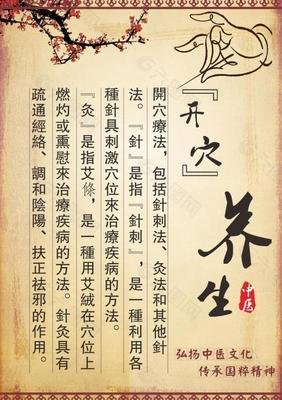 『开穴』
养生
中医
開穴療法，包括針刺法、灸法和其他針
法。『針』是指『針刺』，是一種利用各
種針具刺激穴位來治療疾病的方法。
『灸』是指艾條，是一種用艾絨在穴位上
燃灼或熏慰來治療疾病的方法。針灸具有
疏通經絡、調和陰陽、扶正祛邪的作用。
弘扬中医文化
传承国粹精神